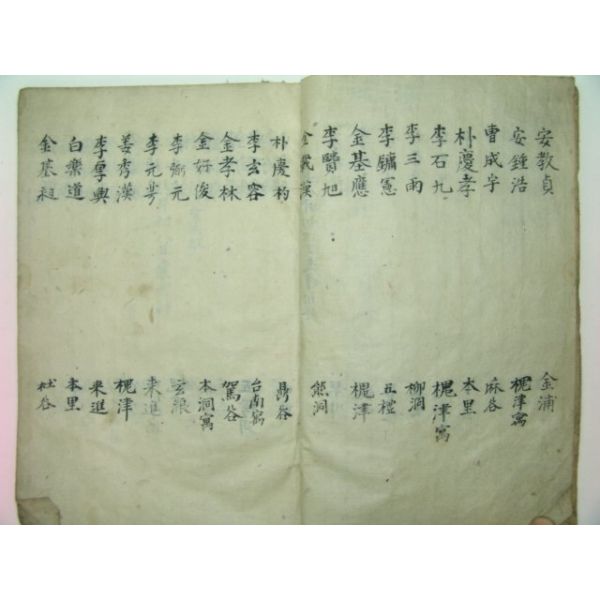 安教貞 金浦
安鍾浩 槐津寓
曺成宇 麻谷
朴慶孝 本里
李石九 槐津寓
李三雨 柳洞
李鏞憲 五樓
金基應 槐津
李賢旭
金 漢 熊洞
朴慶杓 鼎谷
李玄容 台南寓
金孝林 駕谷
金好俊 本洞寓
李弼元 玄浪
李元芳 來進
姜秀漢 槐津
李厚興 來進
白樂道 本里
金基 杜谷